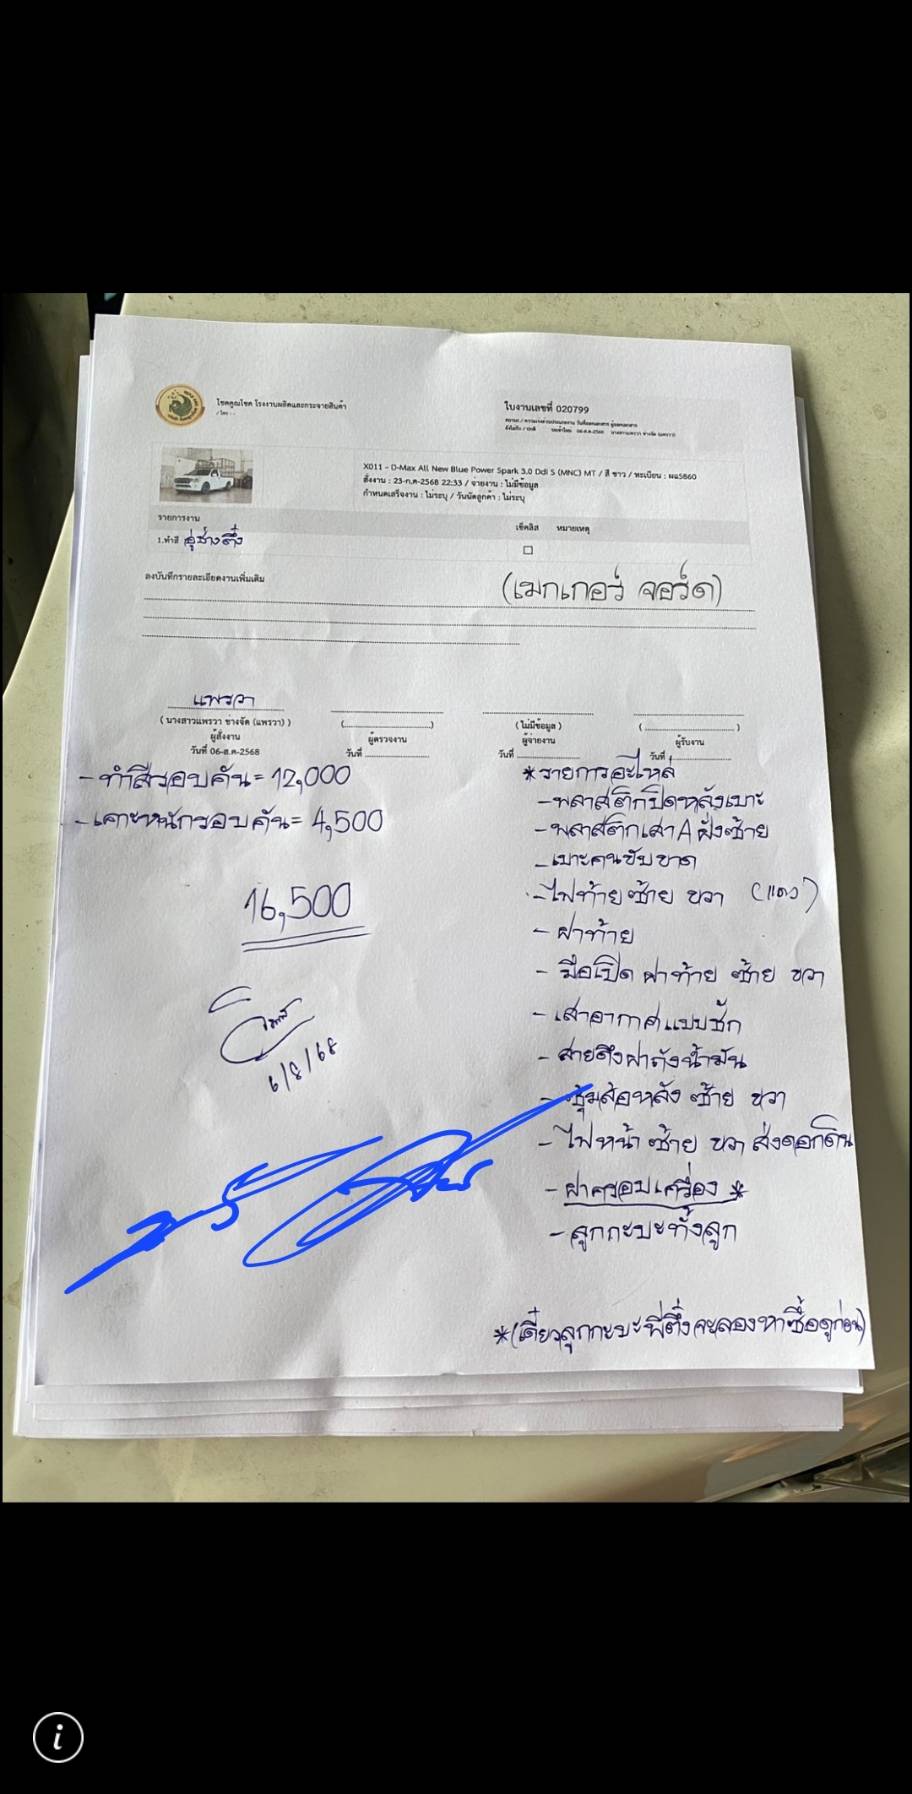 โชคคูณโชค โรงงานผลิตและกระจายสินค้า
/ โทร : -
ใบงานเลขที่ 020799
X011 - D-Max All New Blue Power Spark 3.0 Ddi S (MNC) MT / สี ขาว / ทะเบียน : ผฉ5860
สั่งงาน : 23-ก.ค-2568 22:33 / จ่ายงาน : ไม่มีข้อมูล
กำหนดเสร็จงาน : ไม่ระบุ / วันนัดลูกค้า : ไม่ระบุ
รายการงาน เช็คลิส หมายเหตุ
1.ทำสี อู่ช่างตึ๋ง
ลงบันทึกรายละเอียดงานเพิ่มเติม
(เมกเกอร์ จอร์ด)
แพรวา
( นางสาวแพรวา ช่างจัด (แพรวา) ) (....................) ( ไม่มีข้อมูล ) (....................)
ผู้สั่งงาน ผู้ตรวจงาน ผู้จ่ายงาน ผู้รับงาน
วันที่ 06-ส.ค-2568 วันที่ วันที่ วันที่
- ทำสีรอบคัน = 12,000
- เคาะหนักรอบคัน = 4,500
16,500
6/8/68
* รายการอะไหล่
- พลาสติกปิดหลังเบาะ
- พลาสติกเสา A ฝั่งซ้าย
- เบาะคนขับขาด
- ไฟท้าย ซ้าย ขวา (แดง)
- ฝาท้าย
- มือเปิด ฝาท้าย ซ้าย ขวา
- เสาอากาศแบบชัก
- สายดึงฝาถังน้ำมัน
- ซุ้มล้อหลัง ซ้าย ขวา
- ไฟหน้า ซ้าย ขวา ส่งดอกดิน
- ฝาครอบเครื่อง *
- ลูกกะบะทั้งลูก
* (เดี๋ยวลูกกะบะ พี่ตึ๋งจะลองหาซื้อดูก่อน)